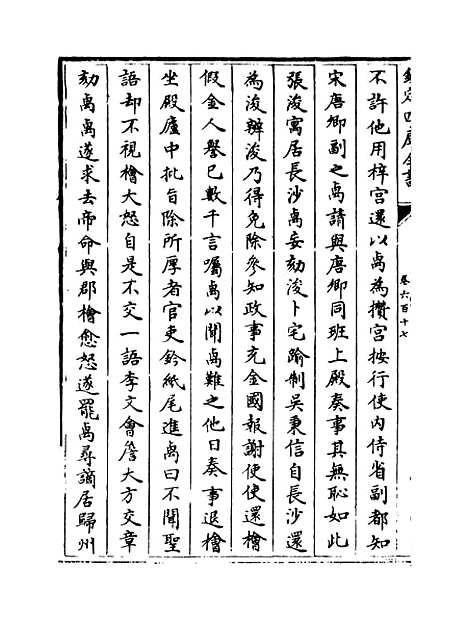 欽定四庫全書
卷六百十七
不許他用梓宫還以卨為攢宫按行使内侍省副都知
宋唐卿副之卨請與唐卿同班上殿奏事其無恥如此
張浚寓居長沙卨妄劾浚卜宅踰制吳秉信自長沙還
為浚辨浚乃得免除參知政事充金國報謝使使還檜
假金人譽已數千言囑卨以聞卨難之他日奏事退檜
坐殿廬中批旨除所厚者官吏鈐紙尾進卨曰不聞聖
語却不視檜大怒自是不交一語李文會詹大方交章
劾卨卨遂求去帝命與郡檜愈怒遂罷卨尋謫居歸州